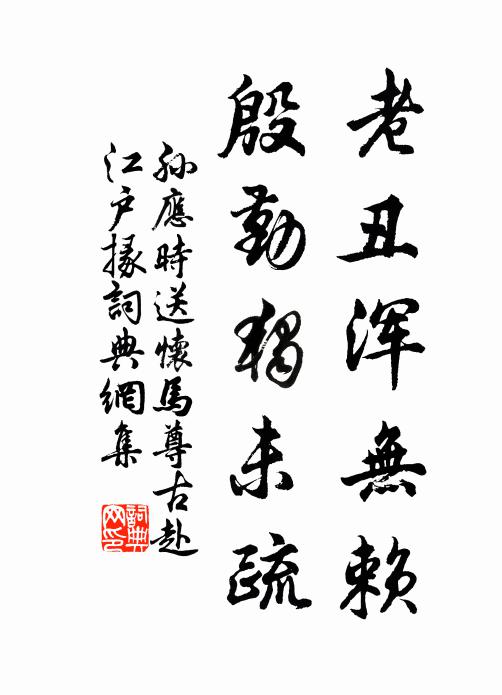 老丑浑無賴
殷勤獨未疏
孫應時送懷馬尊古赴
江户掾詞典網集
詞典网印